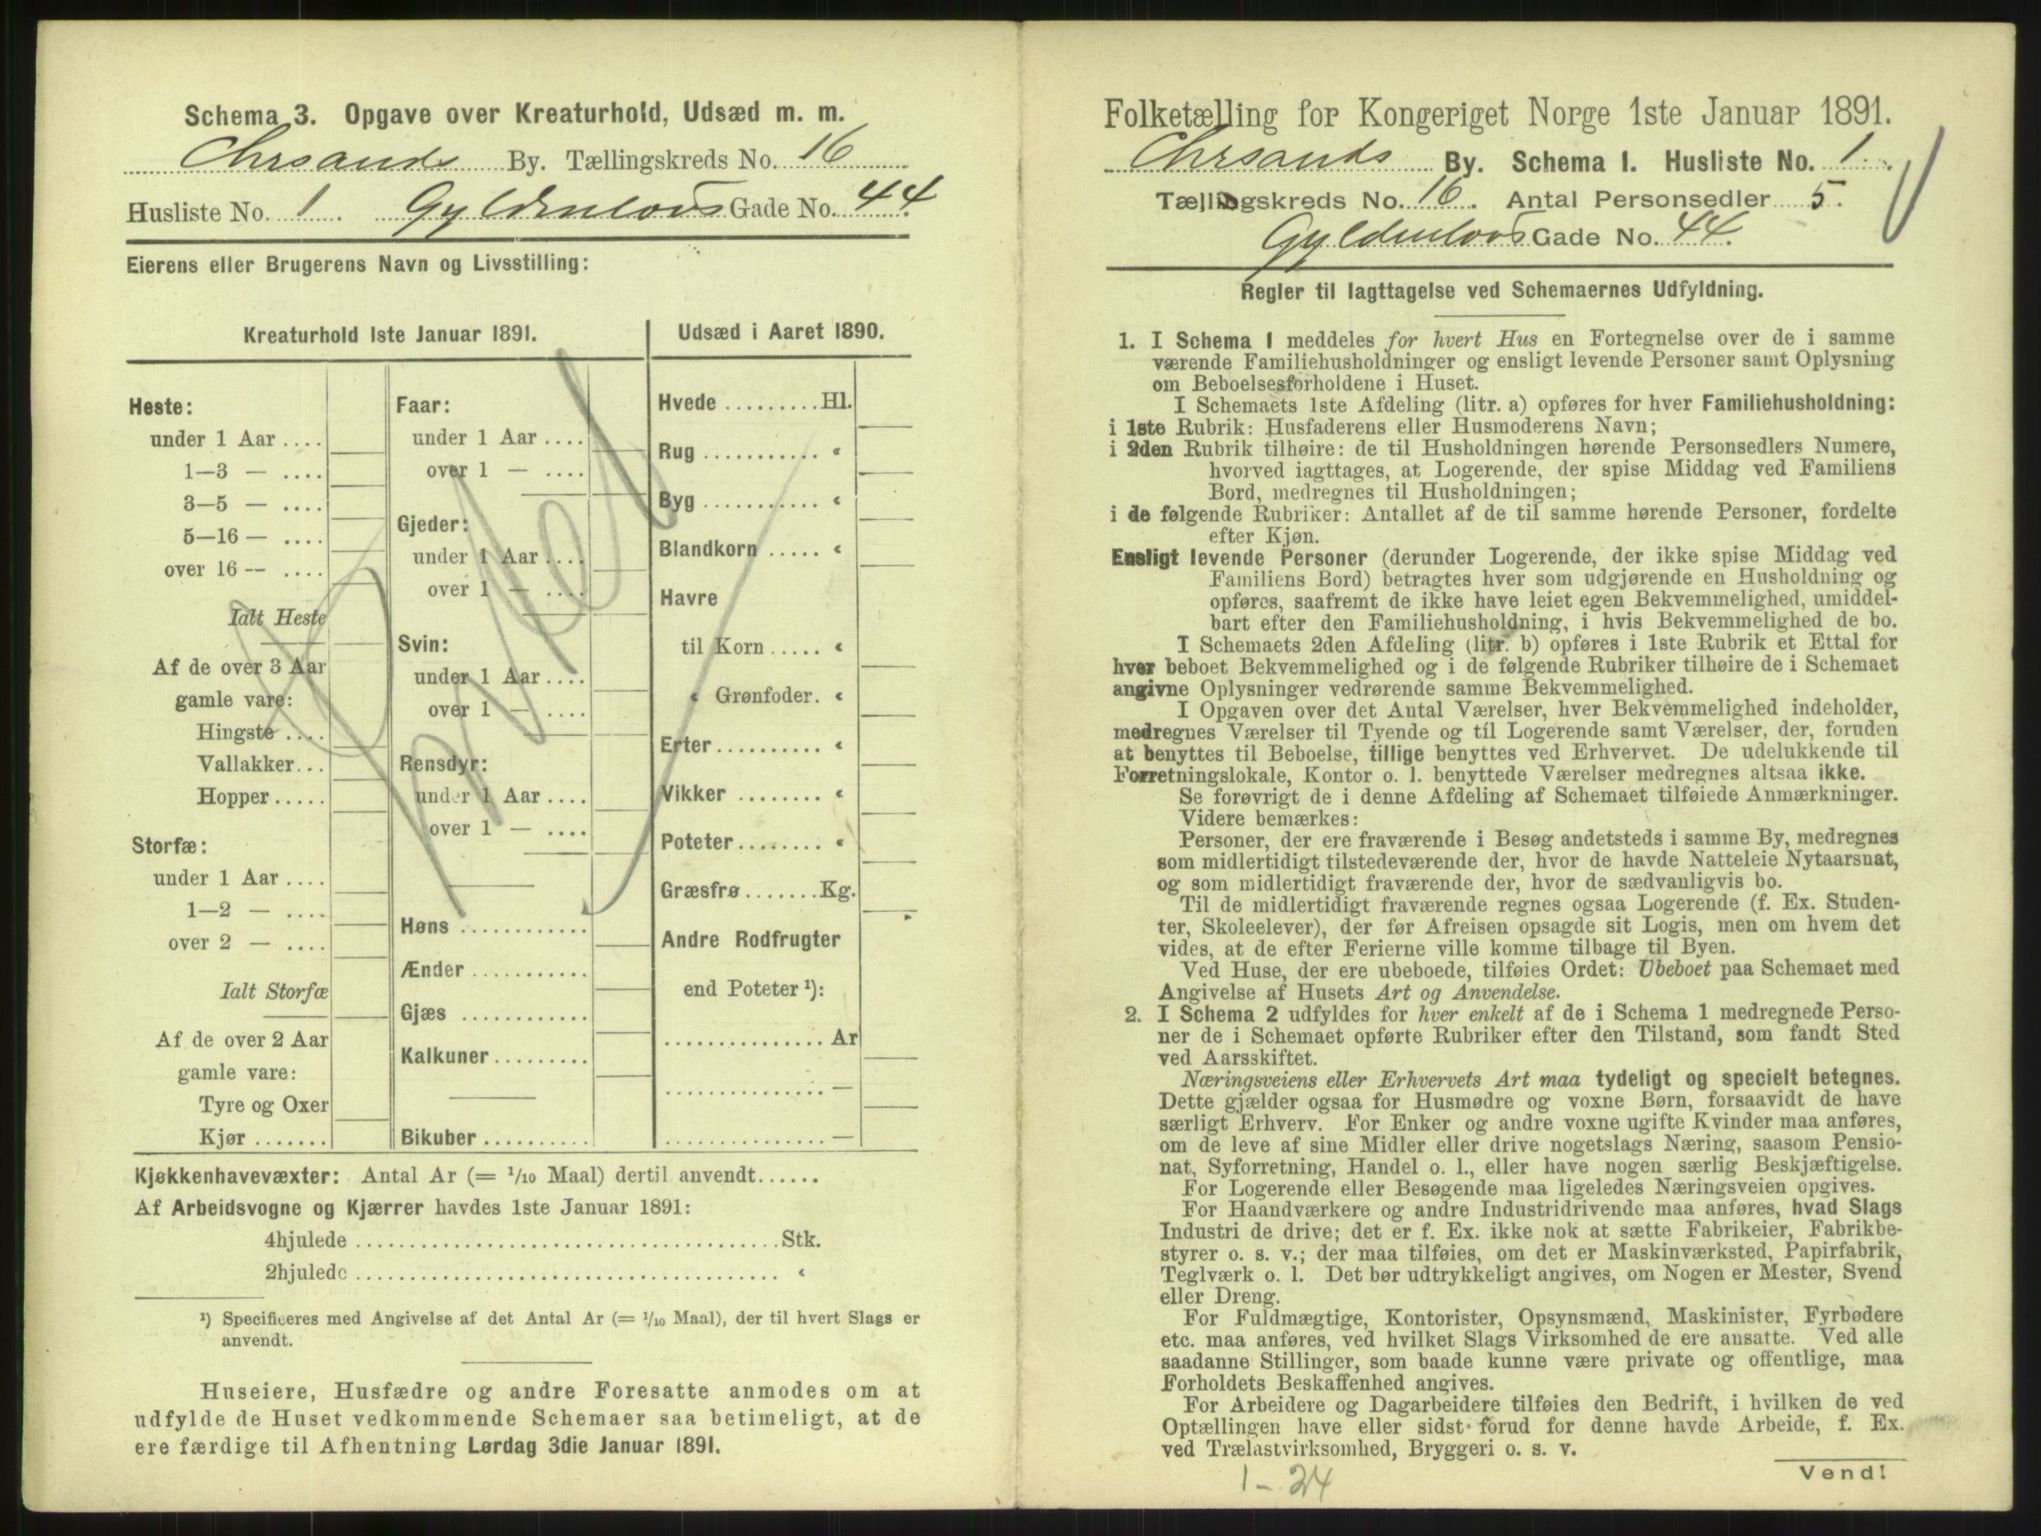 Schema 3. Opgave over Kreaturhold, Udsæd m. m.
Chrsands By. Tællingskreds No. 16
Husliste No. 1 Gyldenløvs Gade No. 44.
Eierens eller Brugerens Navn og Livsstilling:
Kreaturhold 1ste Januar 1891.
Heste:
under 1 Aar ....
1—3 — ....
3—5 — ....
5—16 — ....
over 16 — ....
Ialt Heste
Af de over 3 Aar
gamle vare:
Hingste ....
Vallakker...
Hopper.....
Storfæ:
under 1 Aar ....
1—2 — ....
over 2 — ....
Ialt Storfæ
Af de over 2 Aar
gamle vare:
Tyre og Oxer
Kjør .......
Faar:
under 1 Aar ....
over 1 — ....
Gjeder:
under 1 Aar ....
over 1 — ....
Svin:
under 1 Aar ....
over 1 — ....
Rensdyr:
under 1 Aar ....
over 1 — ....
Høns ............
Ænder ...........
Gjæs ............
Kalkuner.........
Bikuber ..........
Udsæd i Aaret 1890.
Hvede .........Hl.
Rug ........... «
Byg ........... «
Blandkorn ..... «
Havre
til Korn ..... «
« Grønfoder. «
Erter.......... «
Vikker ........ «
Poteter........ «
Græsfrø .......Kg.
Andre Rodfrugter
end Poteter ¹):
............... Ar
............... —
............... —
Kjøkkenhavevæxter: Antal Ar (= 1/10 Maal) dertil anvendt......
Af Arbeidsvogne og Kjærrer havdes 1ste Januar 1891:
4hjulede ........................................Stk.
2hjulede ........................................ «
¹) Specificeres med Angivelse af det Antal Ar (= 1/10 Maal), der til hvert Slags er
anvendt.
Huseiere, Husfædre og andre Foresatte anmodes om at
udfylde de Huset vedkommende Schemaer saa betimeligt, at de
ere færdige til Afhentning Lørdag 3die Januar 1891.
Folketælling for Kongeriget Norge 1ste Januar 1891.
Chrsands By. Schema 1. Husliste No. 1.
Tællingskreds No. 16. Antal Personsedler 5.
Gyldenløvs Gade No. 44.
Regler til Iagttagelse ved Schemaernes Udfyldning.
1. I Schema 1 meddeles for hvert Hus en Fortegnelse over de i samme
værende Familiehusholdninger og ensligt levende Personer samt Oplysning
om Beboelsesforholdene i Huset.
I Schemaets 1ste Afdeling (litr. a) opføres for hver Familiehusholdning:
i 1ste Rubrik: Husfaderens eller Husmoderens Navn;
i 2den Rubrik tilhøire: de til Husholdningen hørende Personsedlers Numere,
hvorved iagttages, at Logerende, der spise Middag ved Familiens
Bord, medregnes til Husholdningen;
i de følgende Rubriker: Antallet af de til samme hørende Personer, fordelte
efter Kjøn.
Ensligt levende Personer (derunder Logerende, der ikke spise Middag ved
Familiens Bord) betragtes hver som udgjørende en Husholdning og
opføres, saafremt de ikke have leiet egen Bekvemmelighed, umiddel-
bart efter den Familiehusholdning, i hvis Bekvemmelighed de bo.
I Schemaets 2den Afdeling (litr. b) opføres i 1ste Rubrik et Ettal for
hver beboet Bekvemmelighed og i de følgende Rubriker tilhøire de i Schemaet
angivne Oplysninger vedrørende samme Bekvemmelighed.
I Opgaven over det Antal Værelser, hver Bekvemmelighed indeholder,
medregnes Værelser til Tyende og til Logerende samt Værelser, der, foruden
at benyttes til Beboelse, tillige benyttes ved Erhvervet. De udelukkende til
Forretningslokale, Kontor o. l. benyttede Værelser medregnes altsaa ikke.
Se forøvrigt de i denne Afdeling af Schemaet tilføiede Anmærkninger.
Videre bemærkes:
Personer, der ere fraværende i Besøg andetsteds i samme By, medregnes
som midlertidigt tilstedeværende der, hvor de havde Natteleie Nytaarsnat,
og som midlertidigt fraværende der, hvor de sædvanligvis bo.
Til de midlertidigt fraværende regnes ogsaa Logerende (f. Ex. Studen-
ter, Skoleelever), der før Afreisen opsagde sit Logis, men om hvem det
vides, at de efter Ferierne ville komme tilbage til Byen.
Ved Huse, der ere ubeboede, tilføies Ordet: Ubeboet paa Schemaet med
Angivelse af Husets Art og Anvendelse.
2. I Schema 2 udfyldes for hver enkelt af de i Schema 1 medregnede Perso-
ner de i Schemaet opførte Rubriker efter den Tilstand, som fandt Sted
ved Aarsskiftet.
Næringsveiens eller Erhvervets Art maa tydeligt og specielt betegnes.
Dette gjælder ogsaa for Husmødre og voxne Børn, forsaavidt de have
særligt Erhverv. For Enker og andre voxne ugifte Kvinder maa anføres,
om de leve af sine Midler eller drive nogetslags Næring, saasom Pensio-
nat, Syforretning, Handel o. l., eller have nogen særlig Beskjæftigelse.
For Logerende eller Besøgende maa ligeledes Næringsveien opgives.
For Haandværkere og andre Industridrivende maa anføres, hvad Slags
Industri de drive; det er f. Ex. ikke nok at sætte Fabrikeier, Fabrikbe-
styrer o. s. v.; der maa tilføies, om det er Maskinværksted, Papirfabrik,
Teglværk o. l. Det bør udtrykkeligt angives, om Nogen er Mester, Svend
eller Dreng.
For Fuldmægtige, Kontorister, Opsynsmænd, Maskinister, Fyrbødere
etc. maa anføres, ved hvilket Slags Virksomhed de ere ansatte. Ved alle
saadanne Stillinger, som baade kunne være private og offentlige, maa
Forholdets Beskaffenhed angives.
For Arbeidere og Dagarbeidere tilføies den Bedrift, i hvilken de ved
Optællingen have eller sidst forud for denne havde Arbeide, f. Ex.
ved Trælastvirksomhed, Bryggeri o. s. v.
1 - 24
Vend!